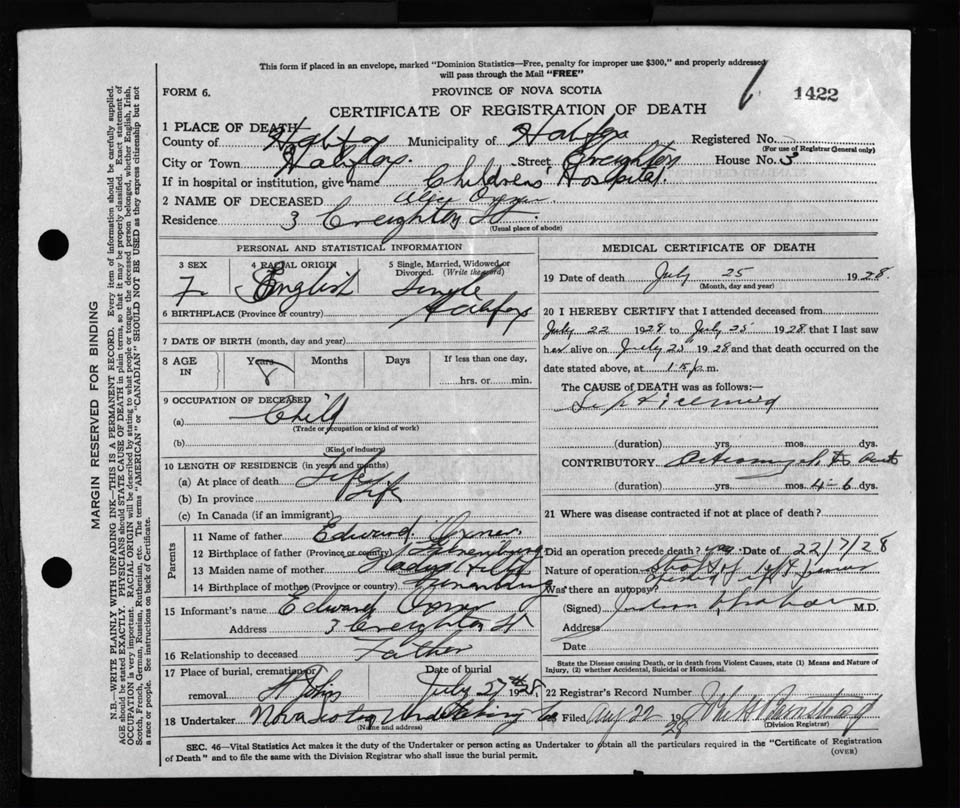 This form if placed in an envelope, marked "Dominion Statistics—Free, penalty for improper use $300," and properly addressed
will pass through the Mail "FREE"
FORM 6.
PROVINCE OF NOVA SCOTIA
1422
CERTIFICATE OF REGISTRATION OF DEATH
1 PLACE OF DEATH
County of Halifax Municipality of Halifax Registered No.
(For use of Registrar General only)
City or Town Halifax. Street Creighton House No. 3
If in hospital or institution, give name Childrens' Hospital.
2 NAME OF DECEASED
Residence 3 Creighton St.
(Usual place of abode)
PERSONAL AND STATISTICAL INFORMATION
3 SEX 4 RACIAL ORIGIN 5 Single, Married, Widowed or Divorced. (Write the word)
F. English Single
6 BIRTHPLACE (Province or country) Halifax
7 DATE OF BIRTH (month, day and year)
8 AGE IN Years Months Days If less than one day,
8 hrs. or min.
9 OCCUPATION OF DECEASED
(a) Child
(Trade or occupation or kind of work)
(b)
(Kind of industry)
10 LENGTH OF RESIDENCE (in years and months)
(a) At place of death Life
(b) In province Life
(c) In Canada (if an immigrant)
Parents
11 Name of father Edward
12 Birthplace of father (Province or country) Lunenburg
13 Maiden name of mother Gladys
14 Birthplace of mother (Province or country) Lunenburg
15 Informant's name Edward
Address 3 Creighton St
16 Relationship to deceased Father
17 Place of burial, cremation or removal St John Date of burial July 27th 1928.
18 Undertaker Nova Scotia Undertaking Co
(Name and address)
MEDICAL CERTIFICATE OF DEATH
19 Date of death July 25 1928.
(Month, day and year)
20 I HEREBY CERTIFY that I attended deceased from
July 22 1928 to July 25 1928 that I last saw
her alive on July 25 1928 and that death occurred on the
date stated above, at m.
The CAUSE OF DEATH was as follows:—
Septicemia
(duration) yrs. mos. dys.
CONTRIBUTORY. Osteomyelitis
(duration) yrs. mos. 4-6 dys.
21 Where was disease contracted if not at place of death?
Did an operation precede death? yes Date of 22/7/28
Nature of operation left femur
Was there an autopsy?
(Signed) M.D.
Address
Date
State the Disease causing Death, or in death from Violent Causes, state (1) Means and Nature of
Injury, (2) whether Accidental, Suicidal or Homicidal.
22 Registrar's Record Number
Filed Aug 22 1928
(Division Registrar)
SEC. 46—Vital Statistics Act makes it the duty of the Undertaker or person acting as Undertaker to obtain all the particulars required in the "Certificate of Registration
of Death" and to file the same with the Division Registrar who shall issue the burial permit.
(OVER)
MARGIN RESERVED FOR BINDING
N.B.—WRITE PLAINLY WITH UNFADING INK—THIS IS A PERMANENT RECORD. Every item of information should be carefully supplied.
AGE should be stated EXACTLY. PHYSICIANS should STATE CAUSE OF DEATH in plain terms, so that it may be properly classified. Exact statement of
OCCUPATION is very important. RACIAL ORIGIN will be described by stating to what people or tongue the deceased person belonged, whether English, Irish,
Scotch, French, German, Russian, Ruthenian, etc. The terms "AMERICAN" or "CANADIAN" SHOULD NOT BE USED as they express citizenship but not
a race or people. See instructions on back of Certificate.